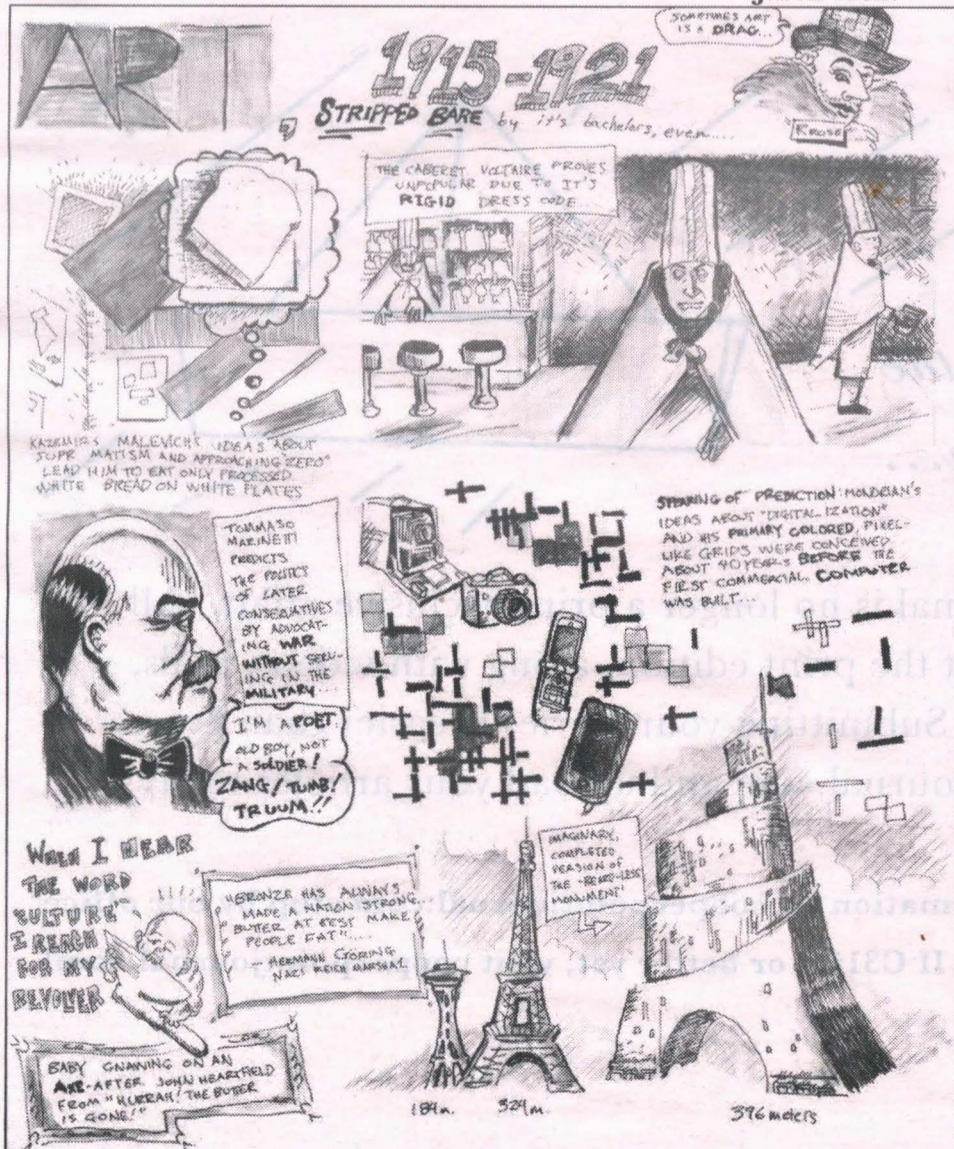 ART
1915-1921
STRIPPED BARE by it's bachelors, even....
SOMETIMES ART
IS A DRAG...
RROSE
THE CABERET VOLTAIRE PROVES
UNPOPULAR DUE TO IT'S
RIGID DRESS CODE
KAZEMIRS MALEVICH'S IDEAS ABOUT
SUPR MATISM AND APPROACHING "ZERO"
LEAD HIM TO EAT ONLY PROCESSED
WHITE BREAD ON WHITE PLATES
TOMMASO
MARINETTI
PREDICTS
THE POLITICS
OF LATER
CONSERVATIVES
BY ADVOCAT-
ING WAR
WITHOUT SERV-
ING IN THE
MILITARY...
I'M A POET,
OLD BOY, NOT
A SOLDIER!
ZANG! TUMB!
TRUUM!!
SPEAKING OF PREDICTION: MONDRIAN'S
IDEAS ABOUT "DIGITAL IZATION"
AND HIS PRIMARY COLORED, PIXEL-
LIKE GRIDS WERE CONCEIVED
ABOUT 40 YEARS BEFORE THE
FIRST COMMERCIAL COMPUTER
IS BUILT...
WHEN I HEAR
THE WORD
CULTURE
I REACH
FOR MY
REVOLVER
"BRONZE HAS ALWAYS
MADE A NATION STRONG,
BUTTER AT BEST MAKE
PEOPLE FAT!"....
- HERMANN GÖRING
NAZI REICH MARSHAL
BABY GNAWING ON AN
AXE - AFTER JOHN HEARTFIELD
FROM "HURRAH! THE BUTTER
IS GONE!"
IMAGINARY,
COMPLETED
VERSION OF
THE
MONUMENT'
184m.
324m.
396 meters
makes no longer a
the print edition
Submitting your
your
or